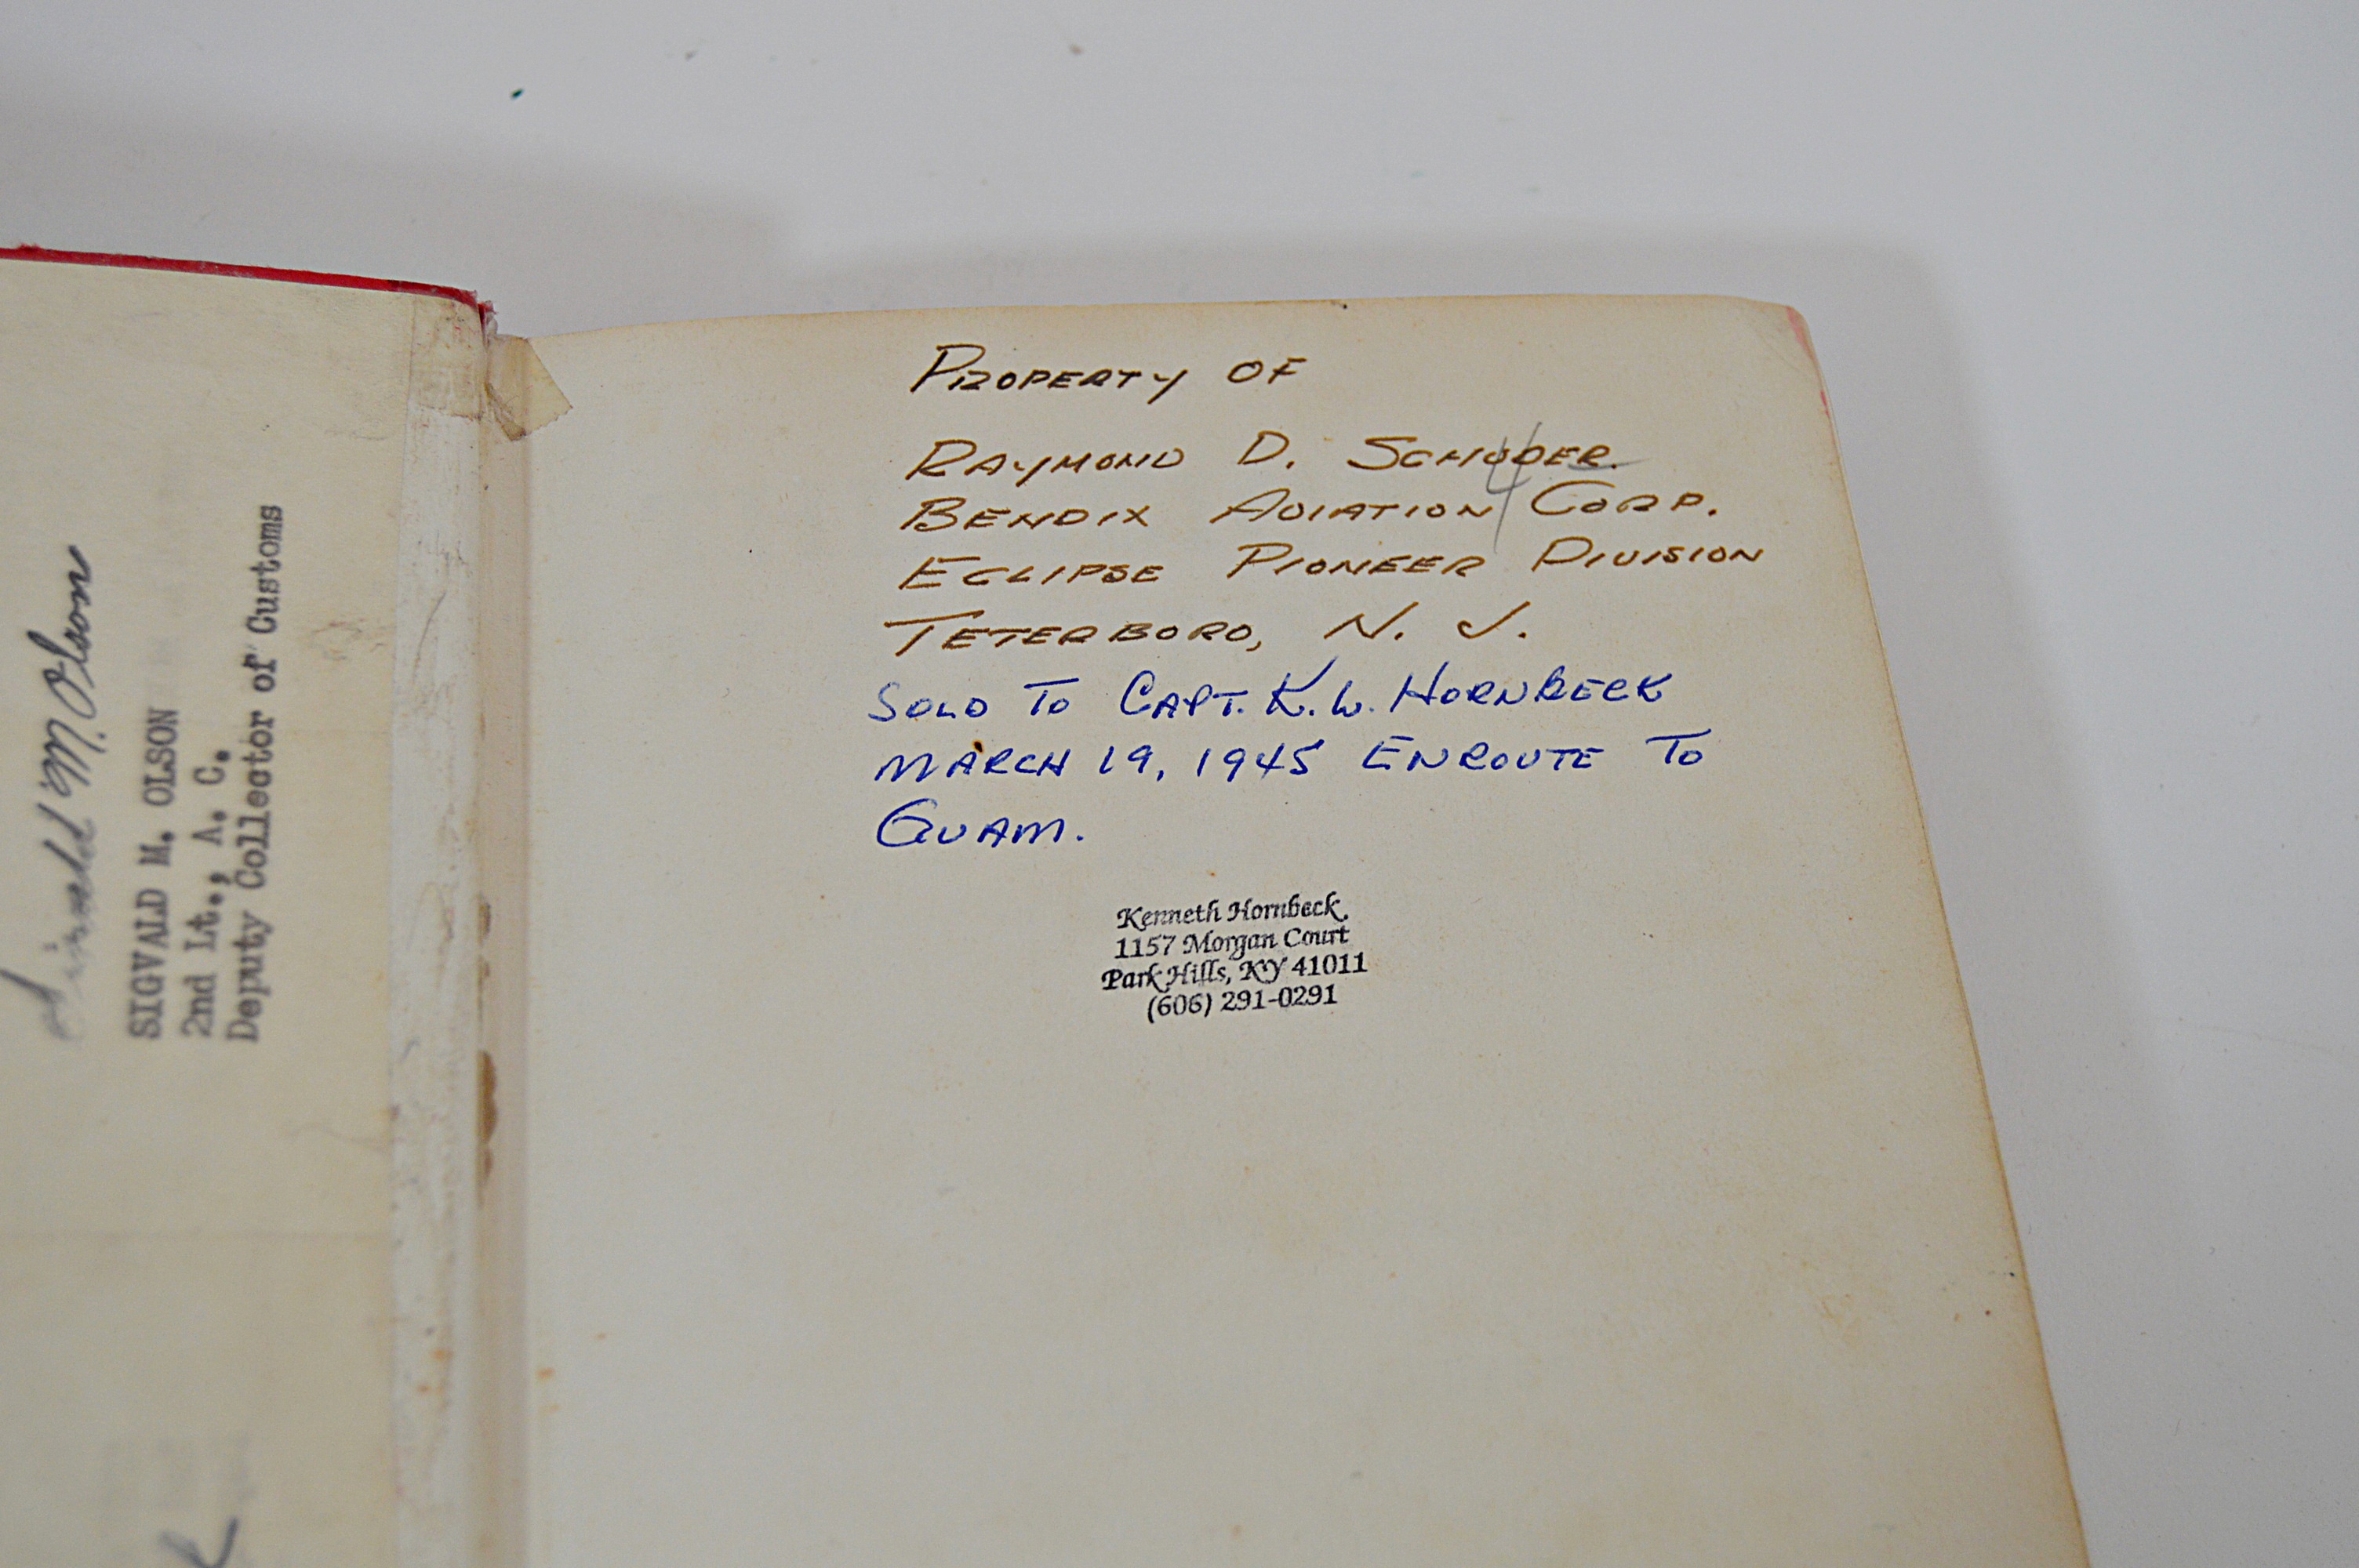 Sigvald M. Olson
SIGVALD M. OLSON
2nd Lt., A. C.
Deputy Collector of Customs
PROPERTY OF
RAYMOND D.
BENDIX AVIATION CORP.
ECLIPSE PIONEER DIVISION
TETERBORO, N. J.
SOLD TO CAPT. K. W. HORNBECK
MARCH 19, 1945 ENROUTE TO
GUAM.
Kenneth Hornbeck
1157 Morgan Court
Park Hills, KY 41011
(606) 291-0291